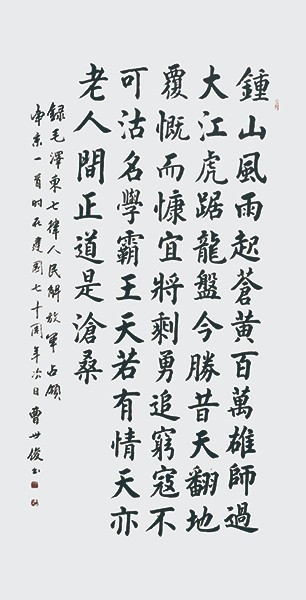 鍾山風雨起蒼黃百萬雄師過
大江虎踞龍盤今勝昔天翻地
覆慨而慷宜將剩勇追窮寇不
可沽名學霸王天若有情天亦
老人間正道是滄桑
錄毛澤東七律人民解放軍占領
南京一首时在建國七十周年次日曹世俊书